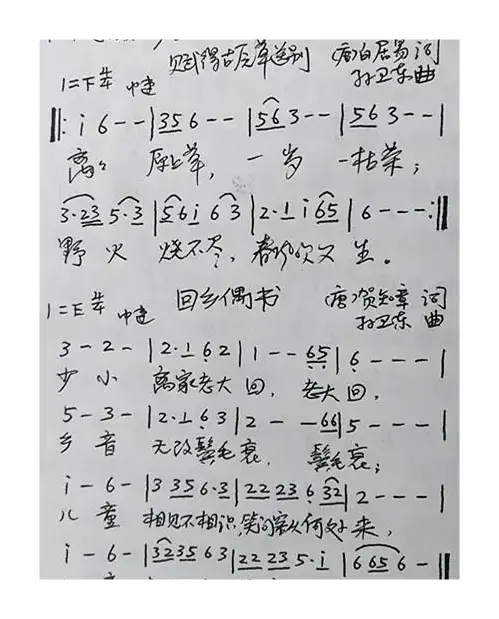 赋得古原草送别 (唐)白居易 词
1=F 4/4 中速 孙卫东 曲
‖: i 6 - - | 35 6 - - | 56 3 - - | 56 3 - - |
离々 原上草, 一岁 一枯荣;
3·23 5·3 | 56i 63 | 2·1 i65 | 6 - - - :‖
野火 烧不尽, 春风吹又生。
1=E 4/4 中速 回乡偶书 (唐)贺知章 词
孙卫东 曲
3 - 2 - | 2·1 6 2 | 1 - - 65 | 6 - - - |
少小 离家老大回, 老大回,
5 - 3 - | 2·1 6 3 | 2 - - 66 | 5 - - - |
乡音 无改鬓毛衰, 鬓毛衰;
i - 6 - | 3 35 6·3 | 22 23 6 32 | 2 - - - |
儿童 相见不相识,笑问客从何处来,
i - 6 - | 3235 63 | 22 23 5·i | 6 65 6 - ‖